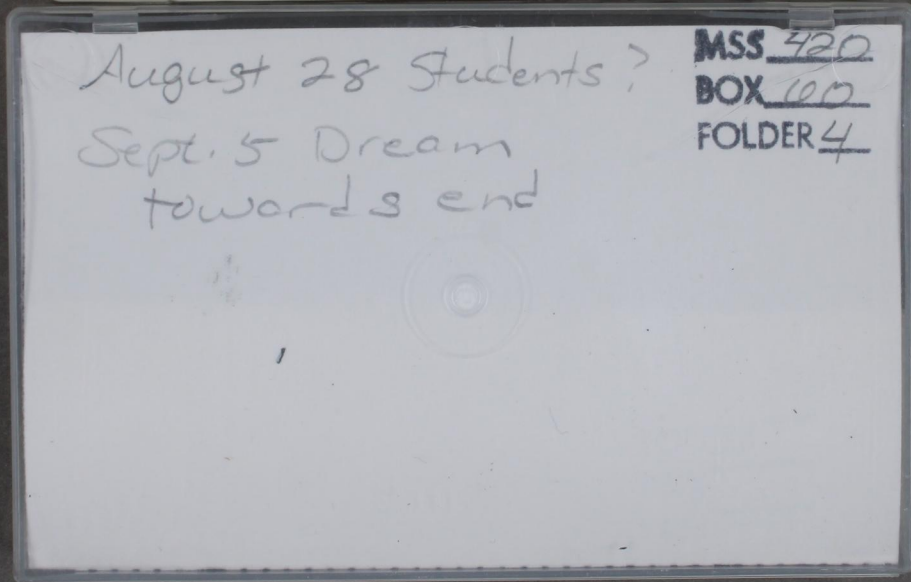 August 28 Students?
Sept. 5 Dream
towards end
MSS 420
BOX 60
FOLDER 4